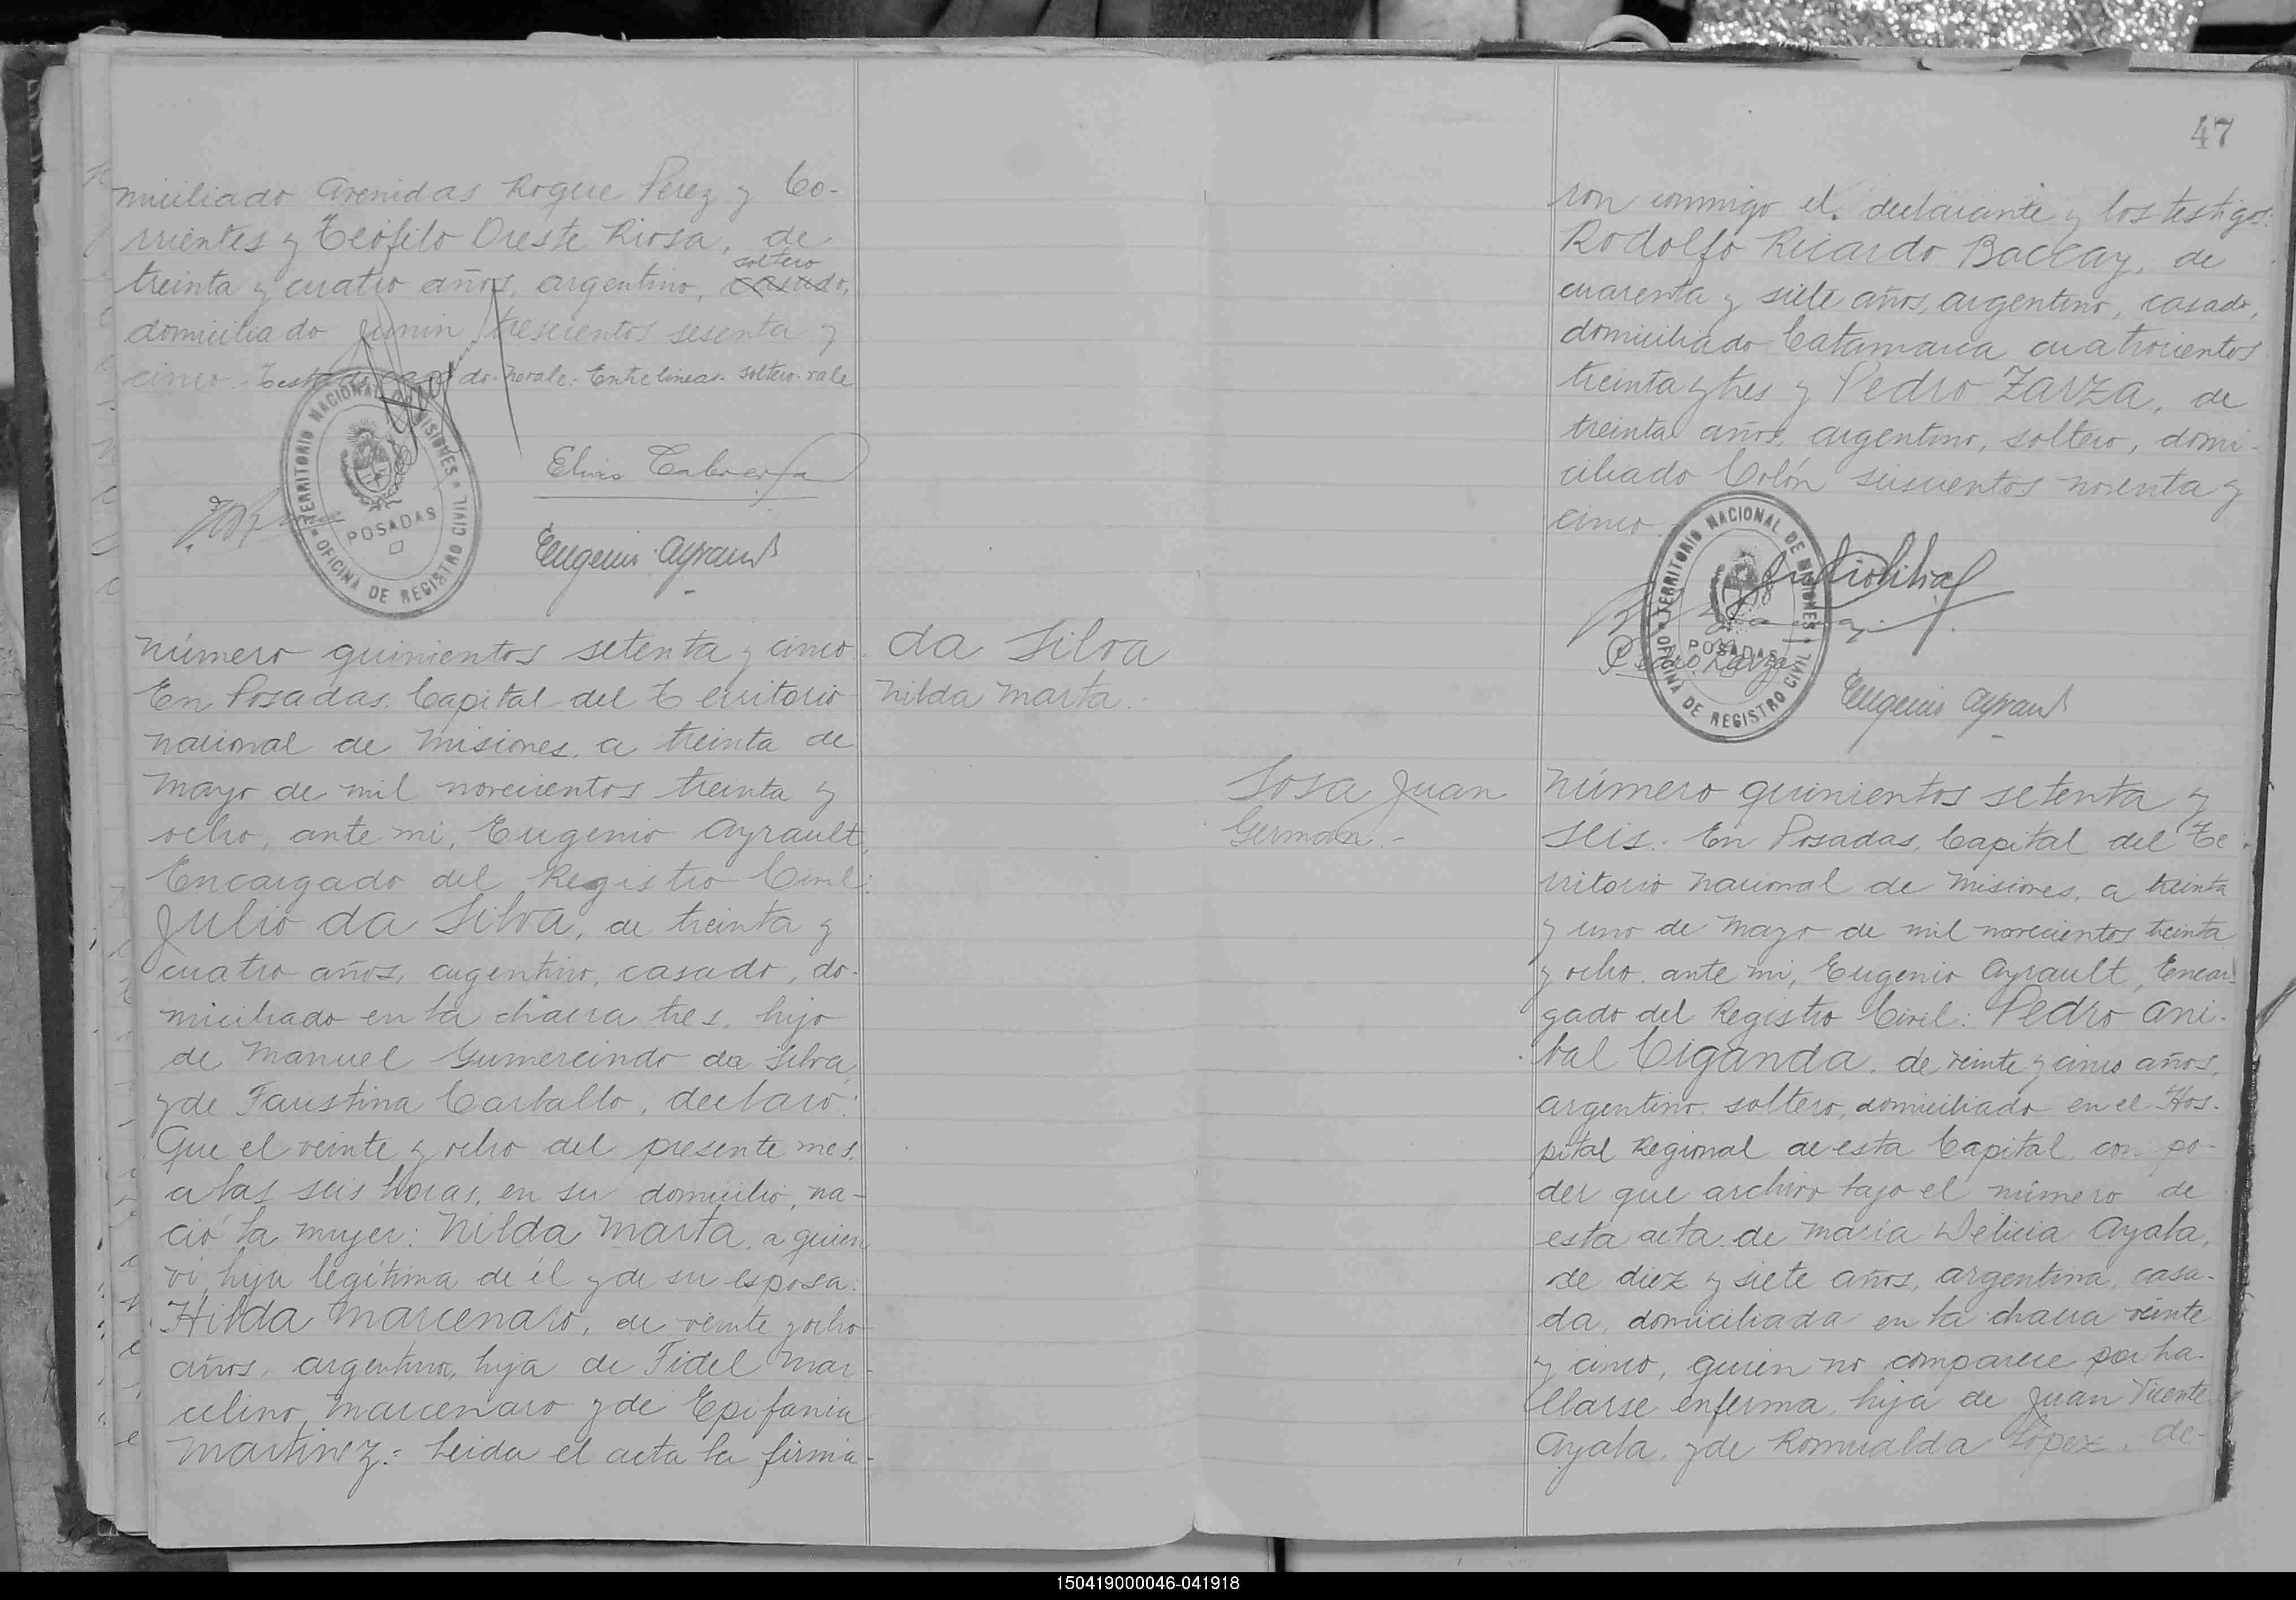 miciliado Avenidas Roque Perez y Co-
rrientes y Teófilo Oreste Riosa, de
soltero
treinta y cuatro años, argentino, casado,
domiciliado Junin trescientos sesenta y
cinco.- Testado casado. no vale.- Entrelineas- soltero- vale
TERRITORIO NACIONAL DE MISIONES
POSADAS
OFICINA DE REGISTRO CIVIL
Elvio Cabrera
Eugenio Ayrault
Número quinientos setenta y cinco.
En Posadas, Capital del Territorio
Nacional de Misiones, a treinta de
Mayo de mil novecientos treinta y
ocho, ante mi, Eugenio Ayrault,
Encargado del Registro Civil:
Julio da Silva, de treinta y
cuatro años, argentino, casado, do-
miciliado en la chacra tres, hijo
de Manuel Gumercindo da Silva
y de Faustina Carballo, declaró:
Que el veinte y ocho del presente mes,
a las seis horas, en su domicilio, na-
ció la mujer: Nilda Marta, a quien
ví, hija legítima de él y de su esposa:
Hilda Marcenaro, de veinte y ocho
años, argentina, hija de Fidel Mar-
celino Marcenaro y de Epifania
Martinez.= Leida el acta la firma-
da Silva
Nilda Marta.-
47
ron conmigo el declarante y los testigos:
Rodolfo Ricardo Baccay, de
cuarenta y siete años, argentino, casado,
domiciliado Catamarca cuatrocientos
treinta y tres y Pedro Zarza, de
treinta años, argentino, soltero, domi-
ciliado Colón seiscientos noventa y
cinco.
TERRITORIO NACIONAL DE MISIONES
POSADAS
OFICINA DE REGISTRO CIVIL
Pedro Zarza
Eugenio Ayrault
Sosa Juan
German.-
Número quinientos setenta y
seis. En Posadas, Capital del Te-
rritorio Nacional de Misiones, a treinta
y uno de Mayo de mil novecientos treinta
y ocho, ante mi, Eugenio Ayrault, Encar-
gado del Registro Civil: Pedro Ani-
bal Ciganda, de veinte y cinco años,
argentino, soltero, domiciliado en el Hos-
pital Regional de esta Capital, con po-
der que archivo bajo el número de
esta acta, de María Delicia Ayala,
de diez y siete años, argentina, casa-
da, domiciliada en la chacra veinte
y cinco, quien no comparece por ha-
llarse enferma, hija de Juan Vicente
Ayala, y de Romualda López, de-
150419000046-041918